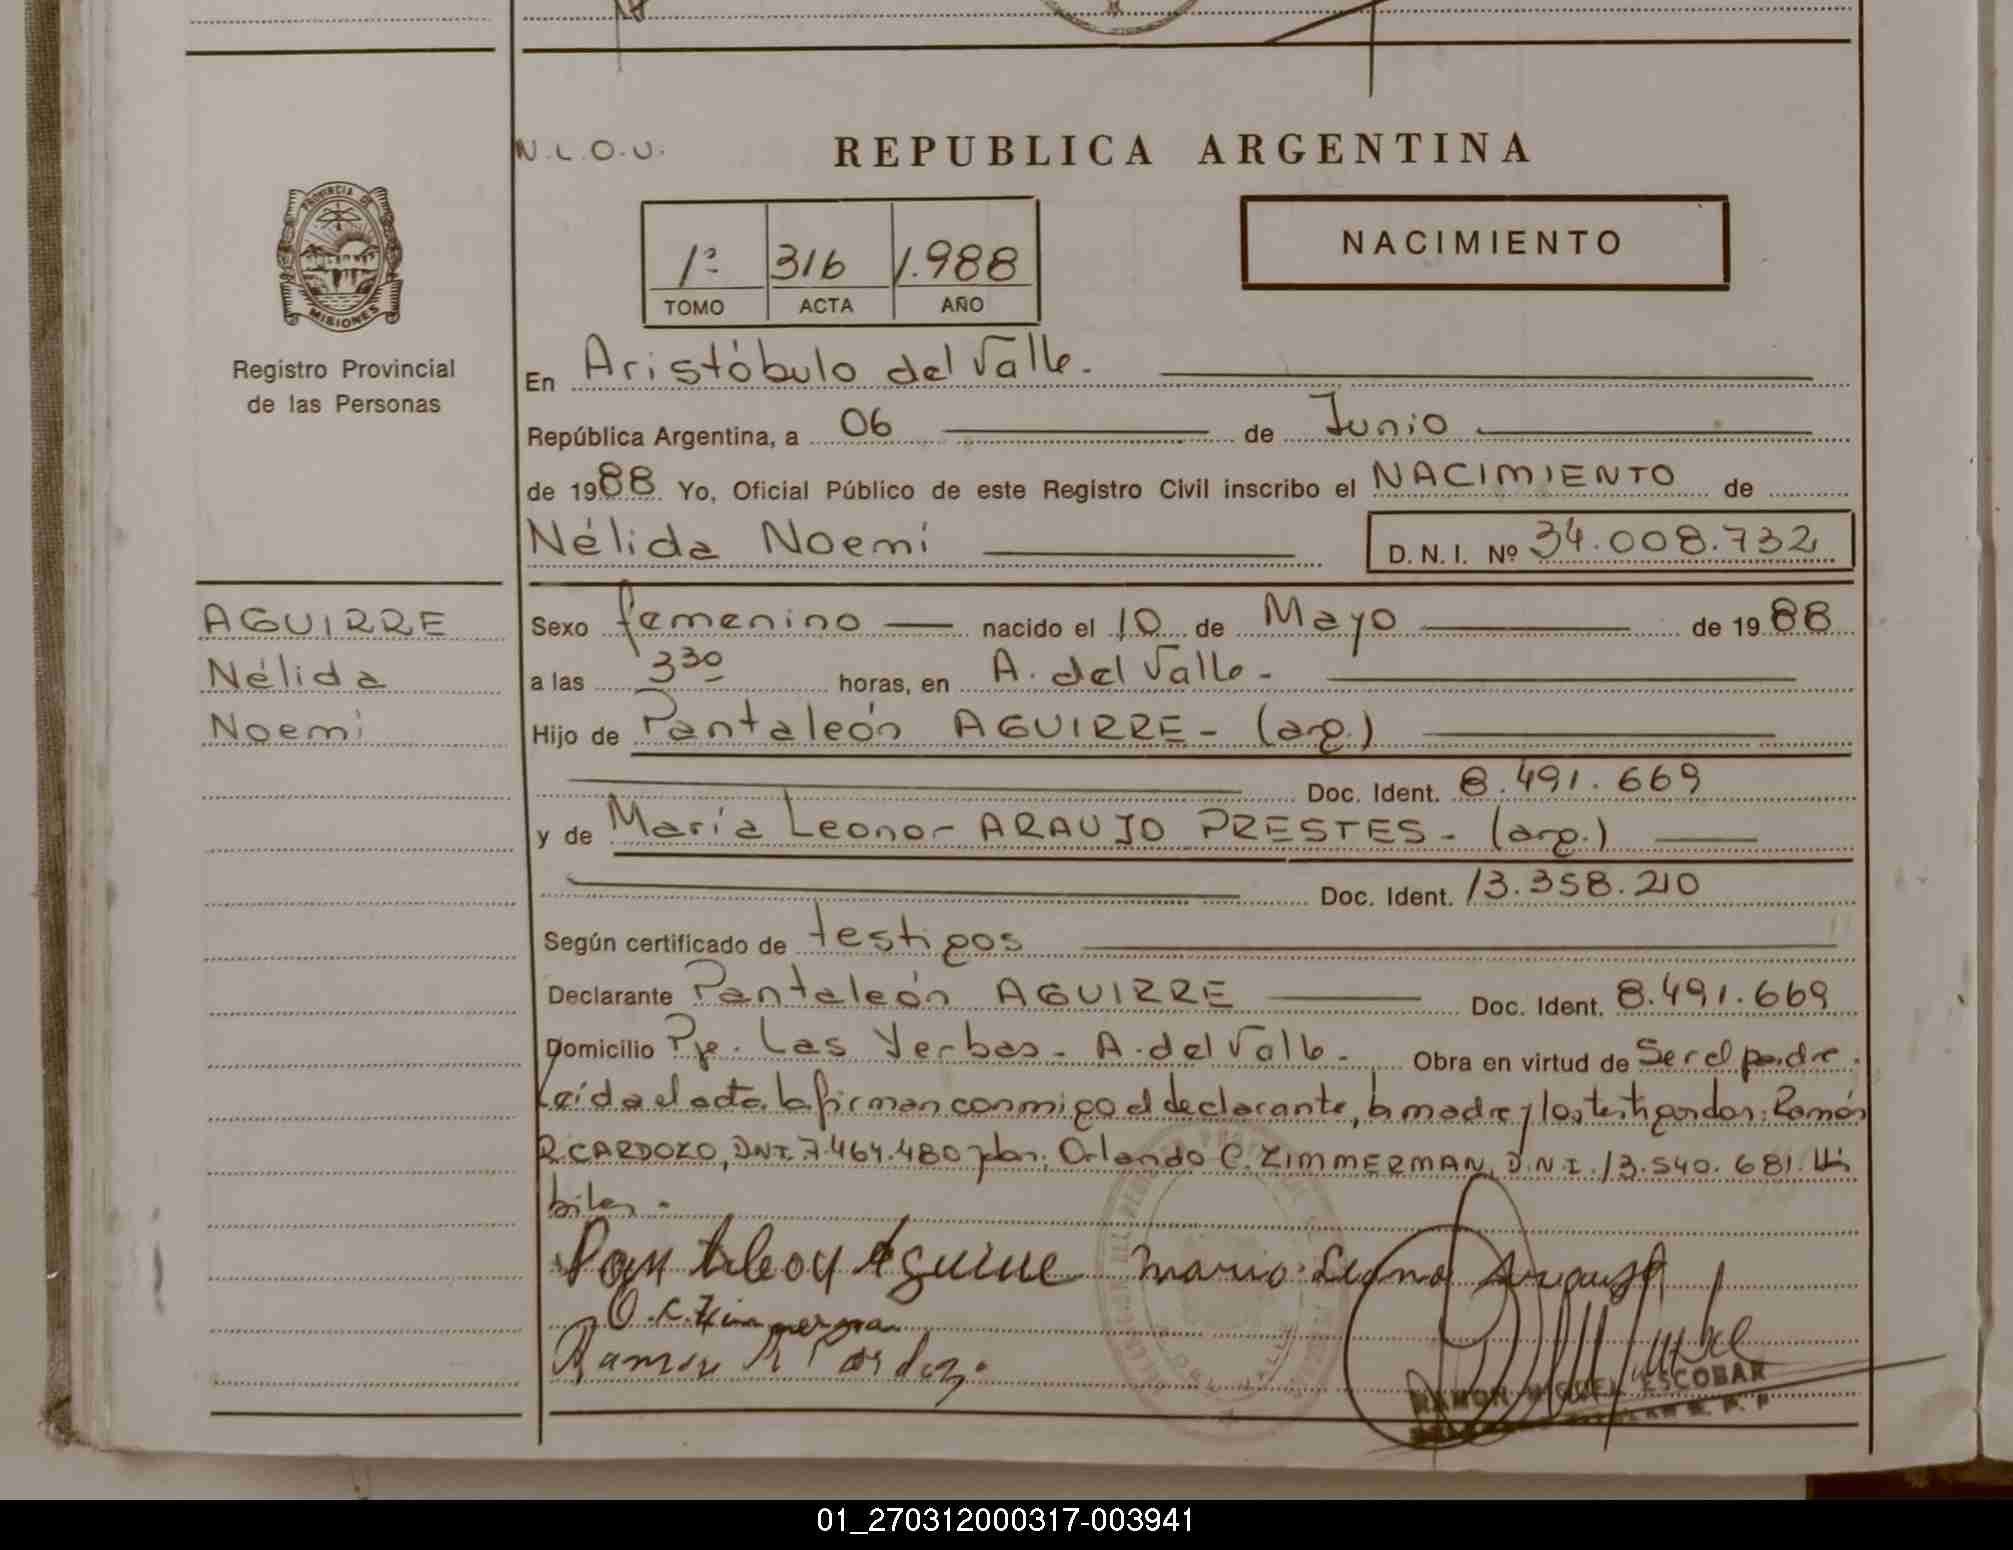 N.L.O.U.
REPUBLICA ARGENTINA
PROVINCIA DE
MISIONES
1º 316 1.988
TOMO ACTA AÑO
NACIMIENTO
Registro Provincial
de las Personas
En Aristóbulo del Valle.
República Argentina, a 06 de Junio
de 1988 Yo, Oficial Público de este Registro Civil inscribo el NACIMIENTO de
Nélida Noemí D.N.I. Nº 34.008.732
AGUIRRE
Nélida
Noemí
Sexo femenino nacido el 10 de Mayo de 1988
a las 3 30 horas, en A. del Valle.-
Hijo de Pantaleón AGUIRRE - (arg.)
Doc. Ident. 8.491.669
y de María Leonor ARAUJO PRESTES - (arg.)
Doc. Ident. 13.358.210
Según certificado de testigos
Declarante Pantaleón AGUIRRE Doc. Ident. 8.491.669
Domicilio Pje. Las Yerbas - A. del Valle. Obra en virtud de Ser el padre.
Leída el acta, la firman conmigo el declarante, la madre y los testigos don: Ramón
R. CARDOZO, DNI. 7.464.480 y don: Orlando C. ZIMMERMAN, D.N.I. 13.540.681. Há
biles.
Pantaleon Aguirre Maria Leonor Araujo
O.C. Zimmerman
Ramon R Cardozo
RAMON MIGUEL ESCOBAR
01_270312000317-003941